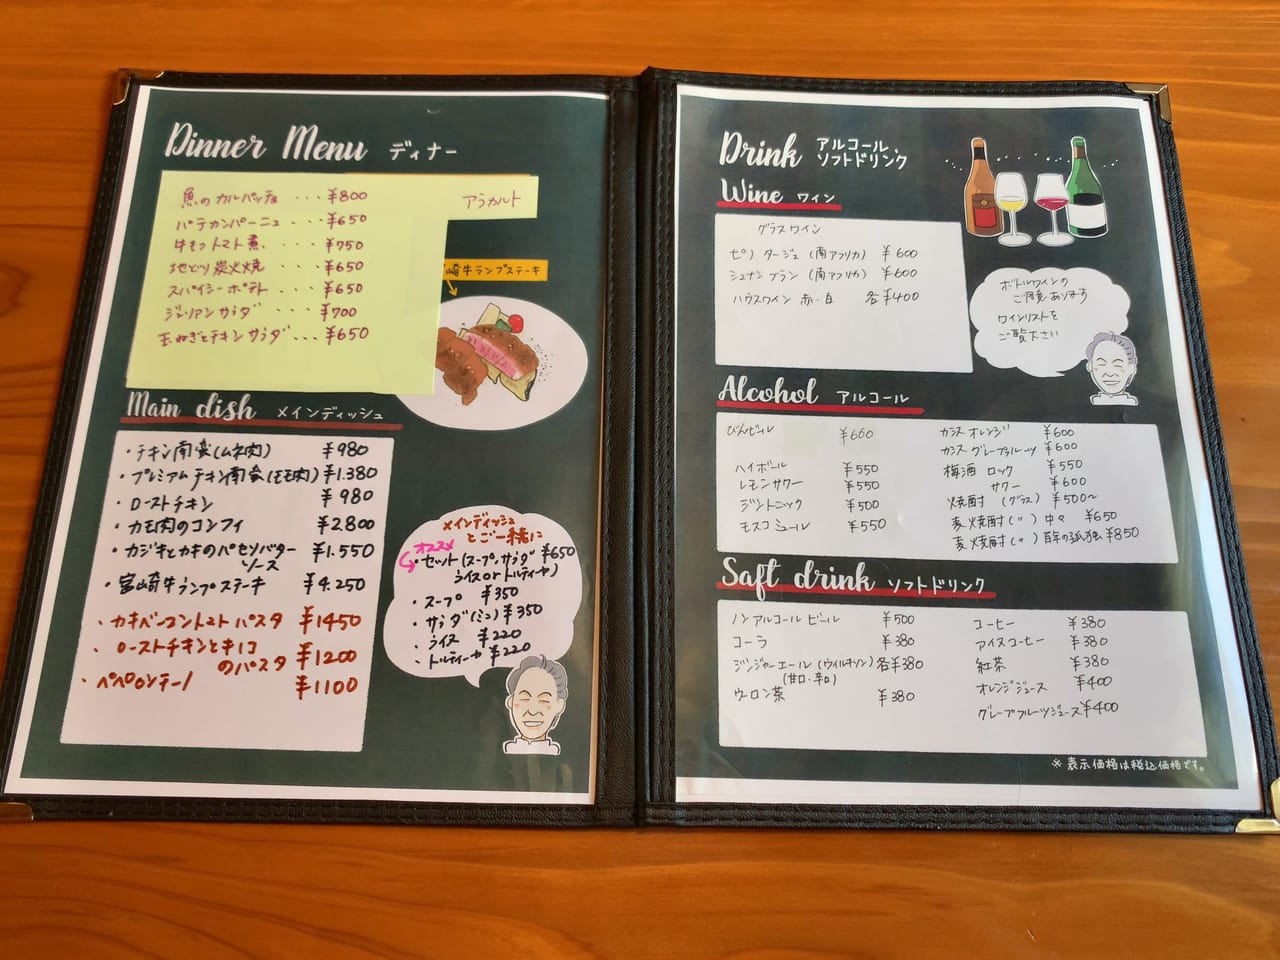 Dinner Menu ディナー
アラカルト
魚のカルパッチョ ・・・・ ¥800
パテカンパーニュ ・・ ¥650
牛もつトマト煮 ・・・・ ¥750
地どり炭火焼 ・・・ ¥650
スパイシーポテト ・・・・ ¥650
ジャリアンサラダ ・・・ ¥700
玉ねぎとチキンサラダ ・・・ ¥650
崎牛ランプステーキ
Main dish メインディッシュ
・チキン南蛮(ムネ肉) ¥980
・プレミアムチキン南蛮(モモ肉) ¥1.380
・ローストチキン ¥980
・カモ肉のコンフィ ¥2800
・カジキとカキのパセリバターソース ¥1.550
・宮崎牛ランプステーキ ¥4.250
・カキベーコントマトパスタ ¥1450
・ローストチキンとキノコ
のパスタ ¥1200
・ペペロンチーノ ¥1100
メインディッシュ
とご一緒に
オススメ
・セット(スープ、サラダ ¥650
ライスorトルティーヤ)
・スープ ¥350
・サラダ(ミニ) ¥350
・ライス ¥220
・トルティーヤ ¥220
Drink アルコール、
ソフトドリンク
Wine ワイン
グラスワイン
ピノタージュ(南アフリカ) ¥600
シュナンブラン(南アフリカ) ¥600
ハウスワイン 赤・白 各¥400
ボトルワインの
ご用意あります
ワインリストを
ご覧下さい
Alcohol アルコール
びんビール ¥660
ハイボール ¥550
レモンサワー ¥550
ジントニック ¥500
モスコミュール ¥550
カシスオレンジ ¥600
カシスグレープフルーツ ¥600
梅酒 ロック ¥550
サワー ¥600
焼酎 (グラス) ¥500〜
麦焼酎(〃) 中々 ¥650
麦焼酎(〃) 百年の孤独 ¥850
Saft drink ソフトドリンク
ノンアルコールビール ¥500
コーラ ¥380
ジンジャーエール(ウィルキンソン) 各¥380
(甘口・辛口)
ウーロン茶 ¥380
コーヒー ¥380
アイスコーヒー ¥380
紅茶 ¥380
オレンジジュース ¥400
グレープフルーツジュース ¥400
※表示価格は税込価格です。